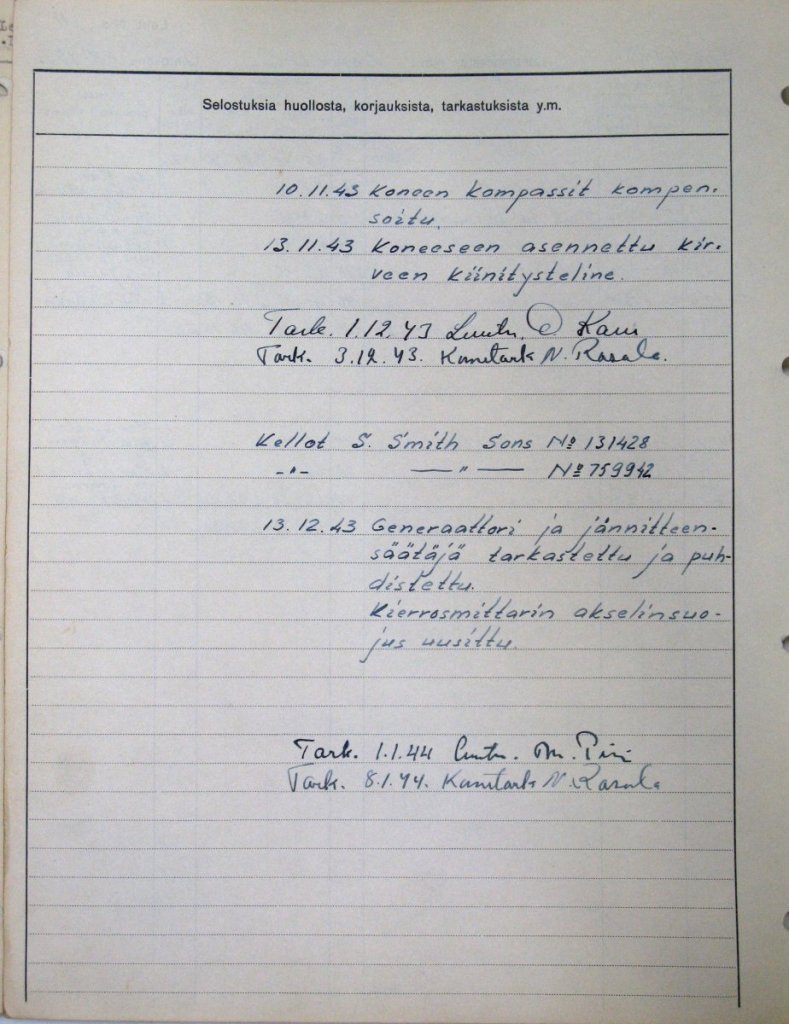 Selostuksia huollosta, korjauksista, tarkastuksista y.m.
10.11.43 Koneen kompassit kompen-
soitu.
13.11.43 Koneeseen asennettu kir-
veen kiinitysteline.
Tark. 1.12.43 Luutn.
Tark. 3.12.43. Konetark N. Rasala.
Kellot S. Smith Sons № 131428
-"- —"— № 759942
13.12.43 Generaattori ja jännitteen-
säätäjä tarkastettu ja puh-
distettu.
Kierrosmittarin akselinsuo-
jus uusittu.
Tark. 1.1.44 Luutn. M. Piri
Tark. 8.1.44. Konetark N. Rasala